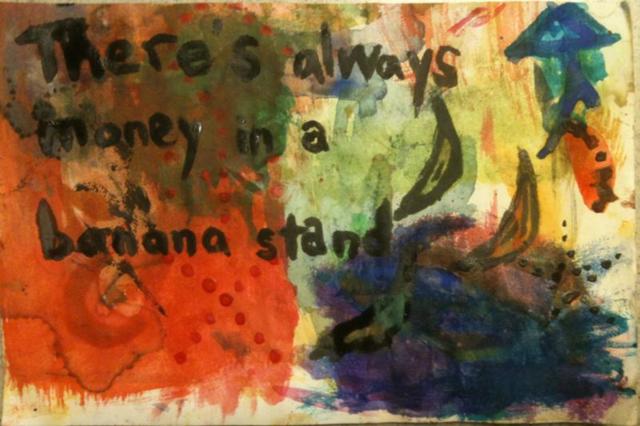 There's always
money in a
banana stand